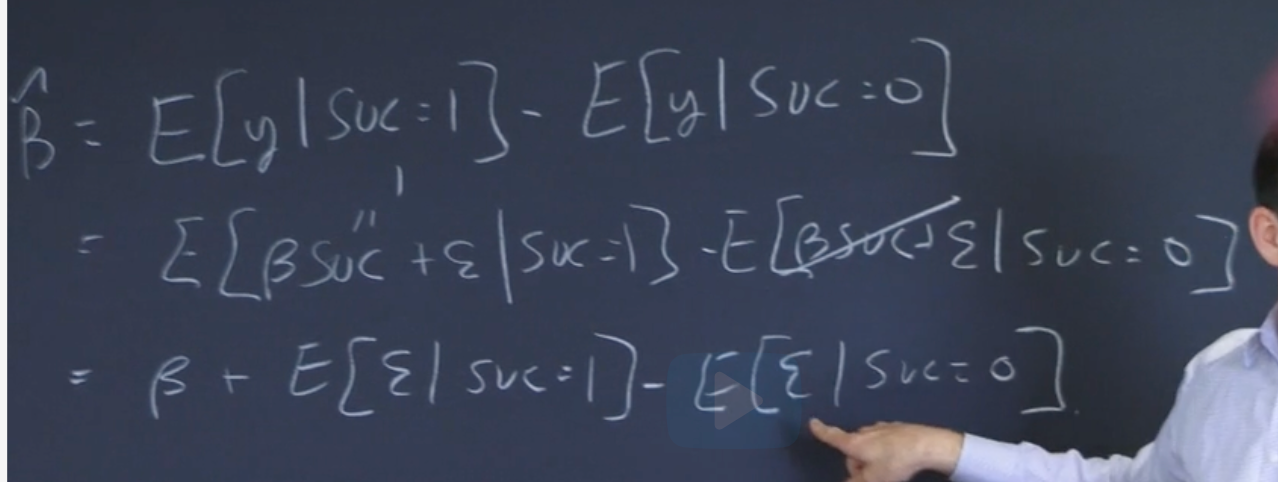 β̂ = E[y | SVC=1] - E[y | SVC=0]
1
"
= E[βSVC + ε | SVC=1] - E[βSVC+ε | SVC=0]
= β + E[ε | SVC=1] - E[ε | SVC=0].